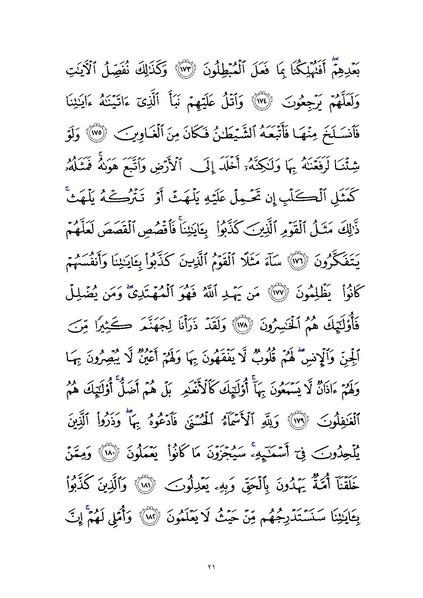 بَعْدِهِمْۖ أَفَتُهْلِكُنَا بِمَا فَعَلَ ٱلْمُبْطِلُونَ ١٧٣ وَكَذَٰلِكَ نُفَصِّلُ ٱلْأٓيَٰتِ
وَلَعَلَّهُمْ يَرْجِعُونَ ١٧٤ وَٱتْلُ عَلَيْهِمْ نَبَأَ ٱلَّذِىٓ ءَاتَيْنَٰهُ ءَايَٰتِنَا
فَٱنسَلَخَ مِنْهَا فَأَتْبَعَهُ ٱلشَّيْطَٰنُ فَكَانَ مِنَ ٱلْغَاوِينَ ١٧٥ وَلَوْ
شِئْنَا لَرَفَعْنَٰهُ بِهَا وَلَٰكِنَّهُۥٓ أَخْلَدَ إِلَى ٱلْأَرْضِ وَٱتَّبَعَ هَوَىٰهُۚ فَمَثَلُهُۥ
كَمَثَلِ ٱلْكَلْبِ إِن تَحْمِلْ عَلَيْهِ يَلْهَثْ أَوْ تَتْرُكْهُ يَلْهَثۚ
ذَّٰلِكَ مَثَلُ ٱلْقَوْمِ ٱلَّذِينَ كَذَّبُوا۟ بِـَٔايَٰتِنَاۚ فَٱقْصُصِ ٱلْقَصَصَ لَعَلَّهُمْ
يَتَفَكَّرُونَ ١٧٦ سَآءَ مَثَلًا ٱلْقَوْمُ ٱلَّذِينَ كَذَّبُوا۟ بِـَٔايَٰتِنَا وَأَنفُسَهُمْ
كَانُوا۟ يَظْلِمُونَ ١٧٧ مَن يَهْدِ ٱللَّهُ فَهُوَ ٱلْمُهْتَدِىۖ وَمَن يُضْلِلْ
فَأُو۟لَٰٓئِكَ هُمُ ٱلْخَٰسِرُونَ ١٧٨ وَلَقَدْ ذَرَأْنَا لِجَهَنَّمَ كَثِيرًا مِّنَ
ٱلْجِنِّ وَٱلْإِنسِۖ لَهُمْ قُلُوبٌ لَّا يَفْقَهُونَ بِهَا وَلَهُمْ أَعْيُنٌ لَّا يُبْصِرُونَ بِهَا
وَلَهُمْ ءَاذَانٌ لَّا يَسْمَعُونَ بِهَآۚ أُو۟لَٰٓئِكَ كَٱلْأَنْعَٰمِ بَلْ هُمْ أَضَلُّۚ أُو۟لَٰٓئِكَ هُمُ
ٱلْغَٰفِلُونَ ١٧٩ وَلِلَّهِ ٱلْأَسْمَآءُ ٱلْحُسْنَىٰ فَٱدْعُوهُ بِهَاۖ وَذَرُوا۟ ٱلَّذِينَ
يُلْحِدُونَ فِىٓ أَسْمَٰٓئِهِۦۚ سَيُجْزَوْنَ مَا كَانُوا۟ يَعْمَلُونَ ١٨٠ وَمِمَّنْ
خَلَقْنَآ أُمَّةٌ يَهْدُونَ بِٱلْحَقِّ وَبِهِۦ يَعْدِلُونَ ١٨١ وَٱلَّذِينَ كَذَّبُوا۟
بِـَٔايَٰتِنَا سَنَسْتَدْرِجُهُم مِّنْ حَيْثُ لَا يَعْلَمُونَ ١٨٢ وَأُمْلِى لَهُمْۚ إِنَّ
٢١